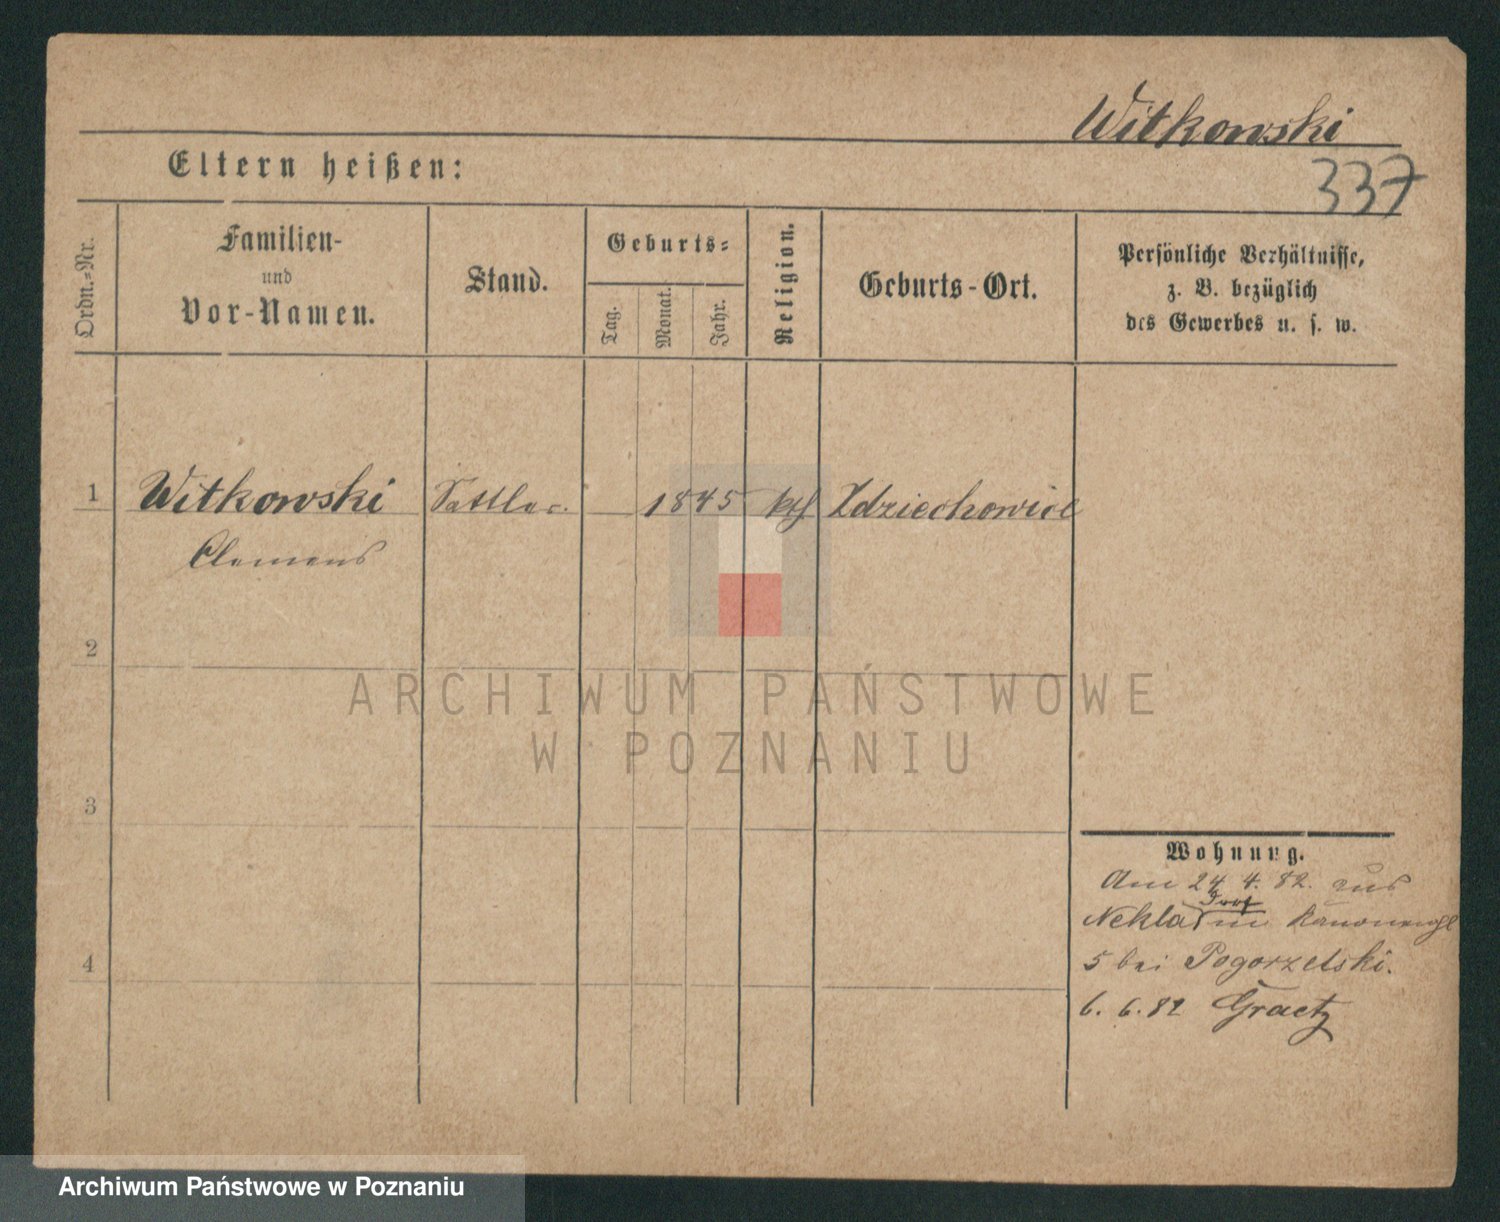 Witkowski
337
Eltern heißen:
Ordn.-Nr.
Familien-
und
Vor-Namen.
Stand.
Geburts-
Tag.
Monat.
Jahr.
Religion.
Geburts-Ort.
Persönliche Verhältnisse,
z. B. bezüglich
des Gewerbes u. s. w.
1 Witkowski Sattler. 1845 kth Zdziechowice
Clemens
2
3
4
Wohnung.
Am 24. 4. 82. aus
Nekla in Kanonenpl
5 bei Pogorzelski.
6. 6. 82 Graetz
ARCHIWUM PAŃSTWOWE
W POZNANIU
Archiwum Państwowe w Poznaniu